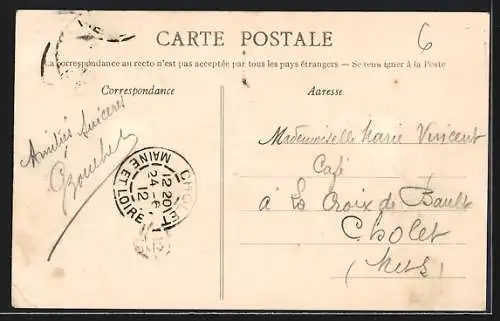 CARTE POSTALE
6
La correspondance au recto n'est pas acceptée par tous les pays étrangers — Se renseigner à la Poste
Correspondance
Adresse
Amitiés sincères
Mademoiselle Marie Vincent
Café
à La Croix de Bault
Cholet
CHOLET
12 20
24 - 6
12
MAINE ET LOIRE